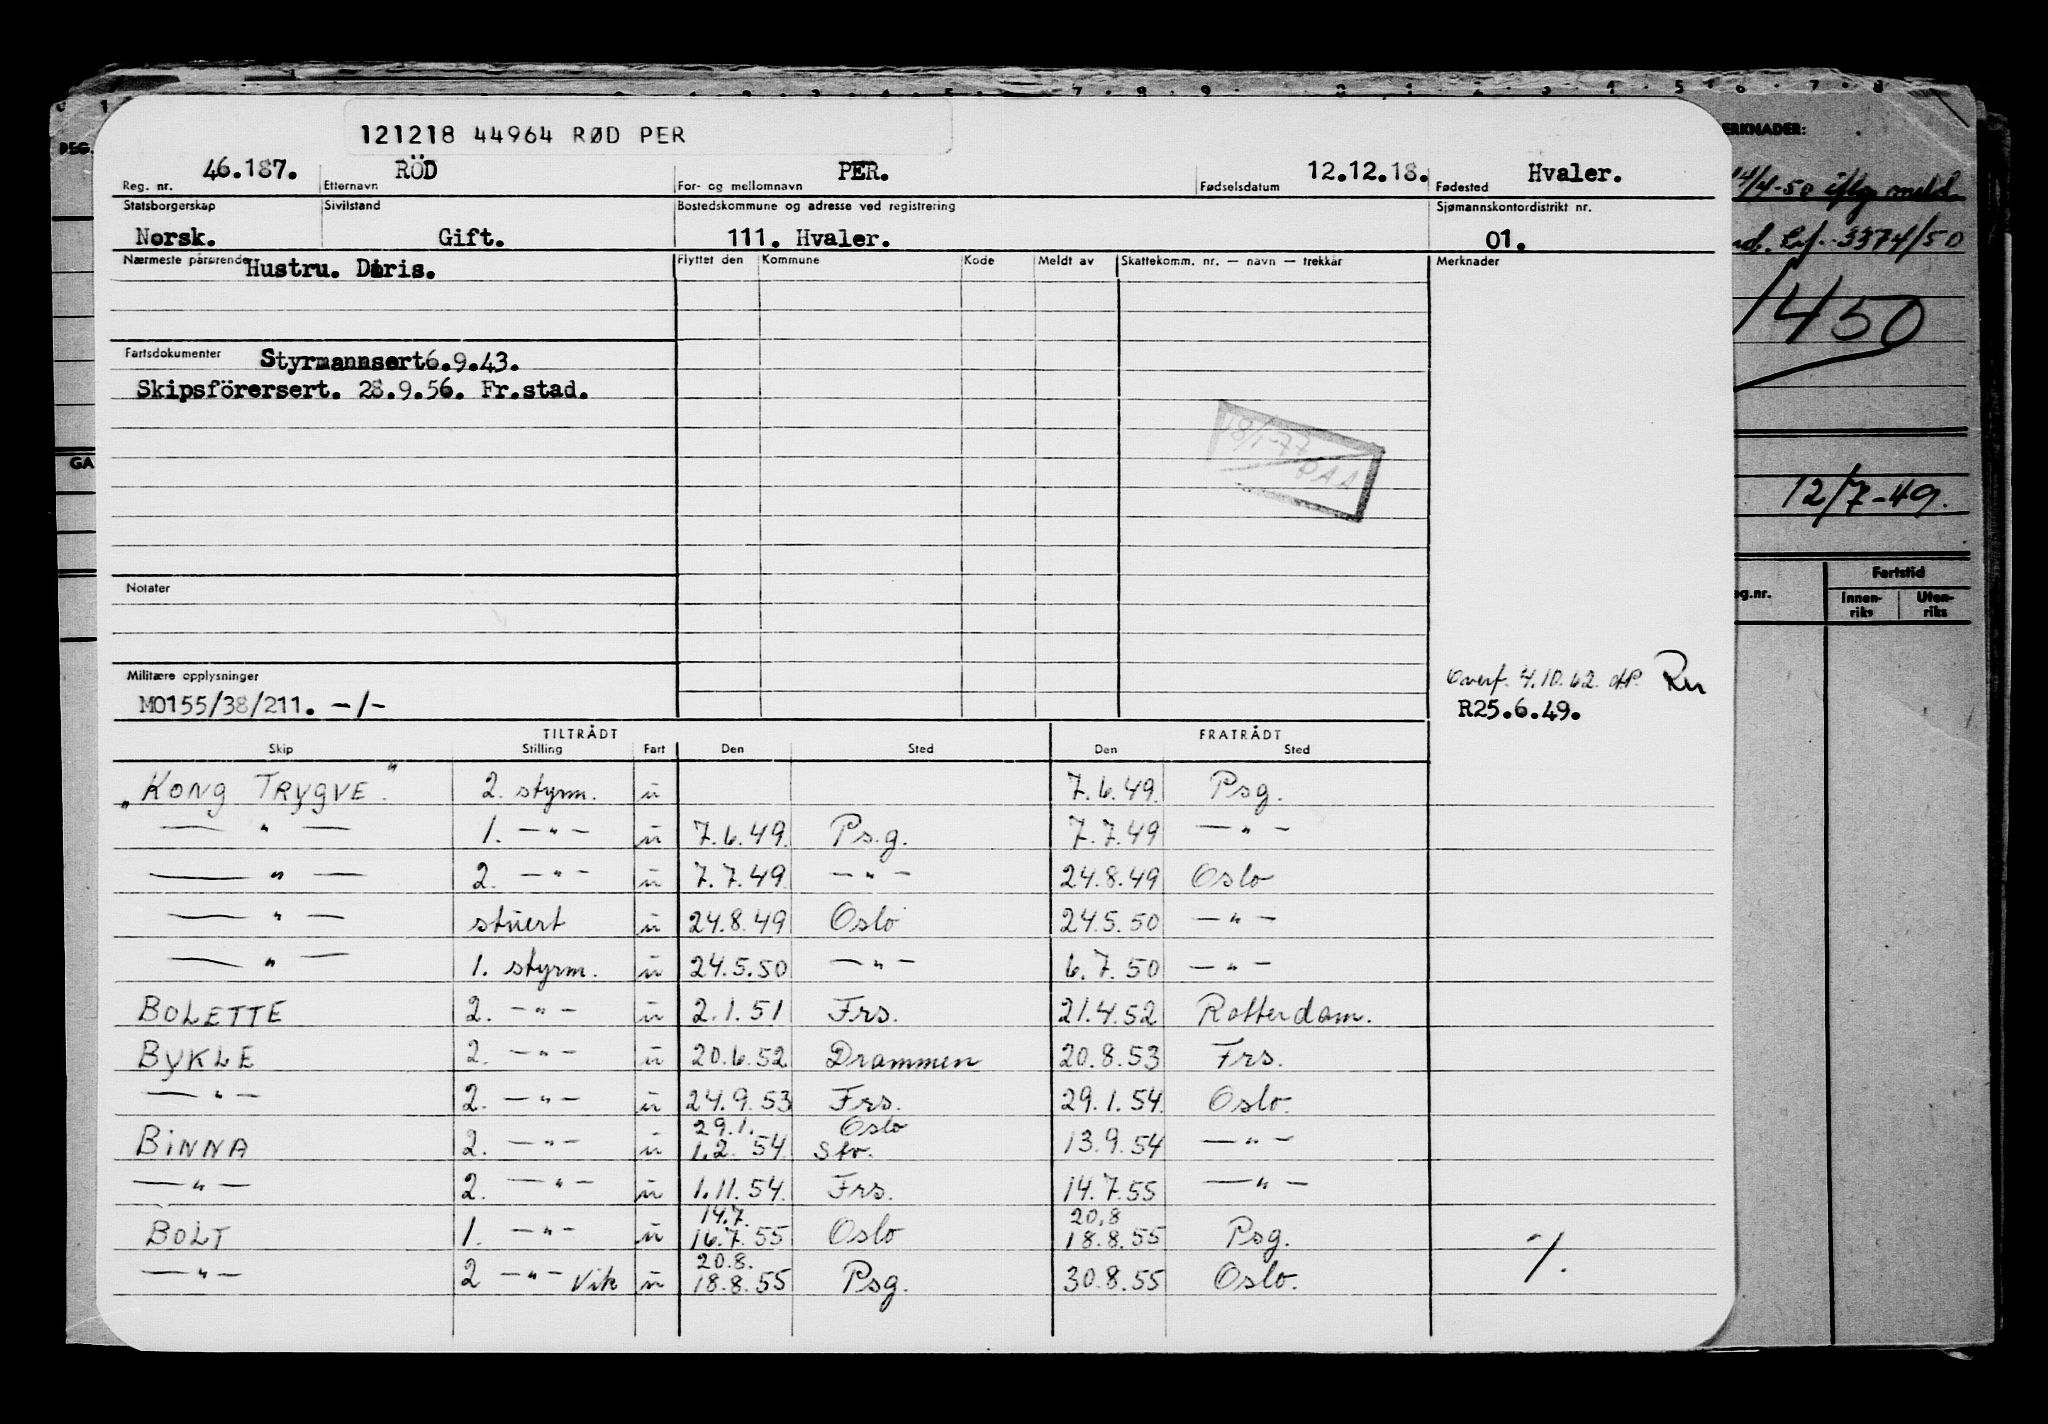 121218 44964 RØD PER
46.187. RÖD PER. 12.12.18. Hvaler.
Reg. nr. Etternavn For- og mellomnavn Fødselsdatum Fødested
Statsborgerskap Sivilstand Bostedskommune og adresse ved registrering Sjømannskontordistrikt nr.
Norsk. Gift. 111. Hvaler. 01.
Nærmeste pårørende Hustru. Doris. Flyttet den Kommune Kode Meldt av Skattekomm. nr. — navn — trekkår Merknader
Fartsdokumenter Styrmannsert 6.9.43.
Skipsförersert. 28.9.56. Fr.stad.
18/1-77
PAA
Notater
Militære opplysninger
M0155/38/211. -/-
Overf. 4.10.62.
R25.6.49.
TILTRÅDT FRATRÅDT
Skip Stilling Fart Den Sted Den Sted
„KONG TRYGVE" 2. styrm. u 7.6.49. Psg.
— " — 1. — " — u 7.6.49. Ps.g. 7.7.49 — " —
— " — 2. — " — u 7.7.49 — " — 24.8.49 Oslo
— " — stuert u 24.8.49 Oslo 24.5.50 — " —
— " — 1. styrm. u 24.5.50 — " — 6.7.50 — " —
BOLETTE 2. — " — u 2.1.51 Frs. 21.4.52 Rotterdam.
BYKLE 2. — " — u 20.6.52 Drammen 20.8.53 Frs.
— " — 2. — " — u 24.9.53 Frs. 29.1.54. Oslo.
29.1. Oslo
BINNA 2. — " — u 1.2.54 Stv. 13.9.54 — " —
— " — 2. — " — u 1.11.54. Frs. 14.7.55 — " —
14.7. 20.8
BOLT 1. — " — u 16.7.55 Oslo 18.8.55 Psg. -/.
20.8.
— " — 2 — " — Vik u 18.8.55 Psg. 30.8.55 Oslo.
REG.
GA
ERKNADER:
14/4-50 iflg meld
3374/50
1450
12/7-49.
g.nr. Fartstid
Innen- Uten-
riks riks